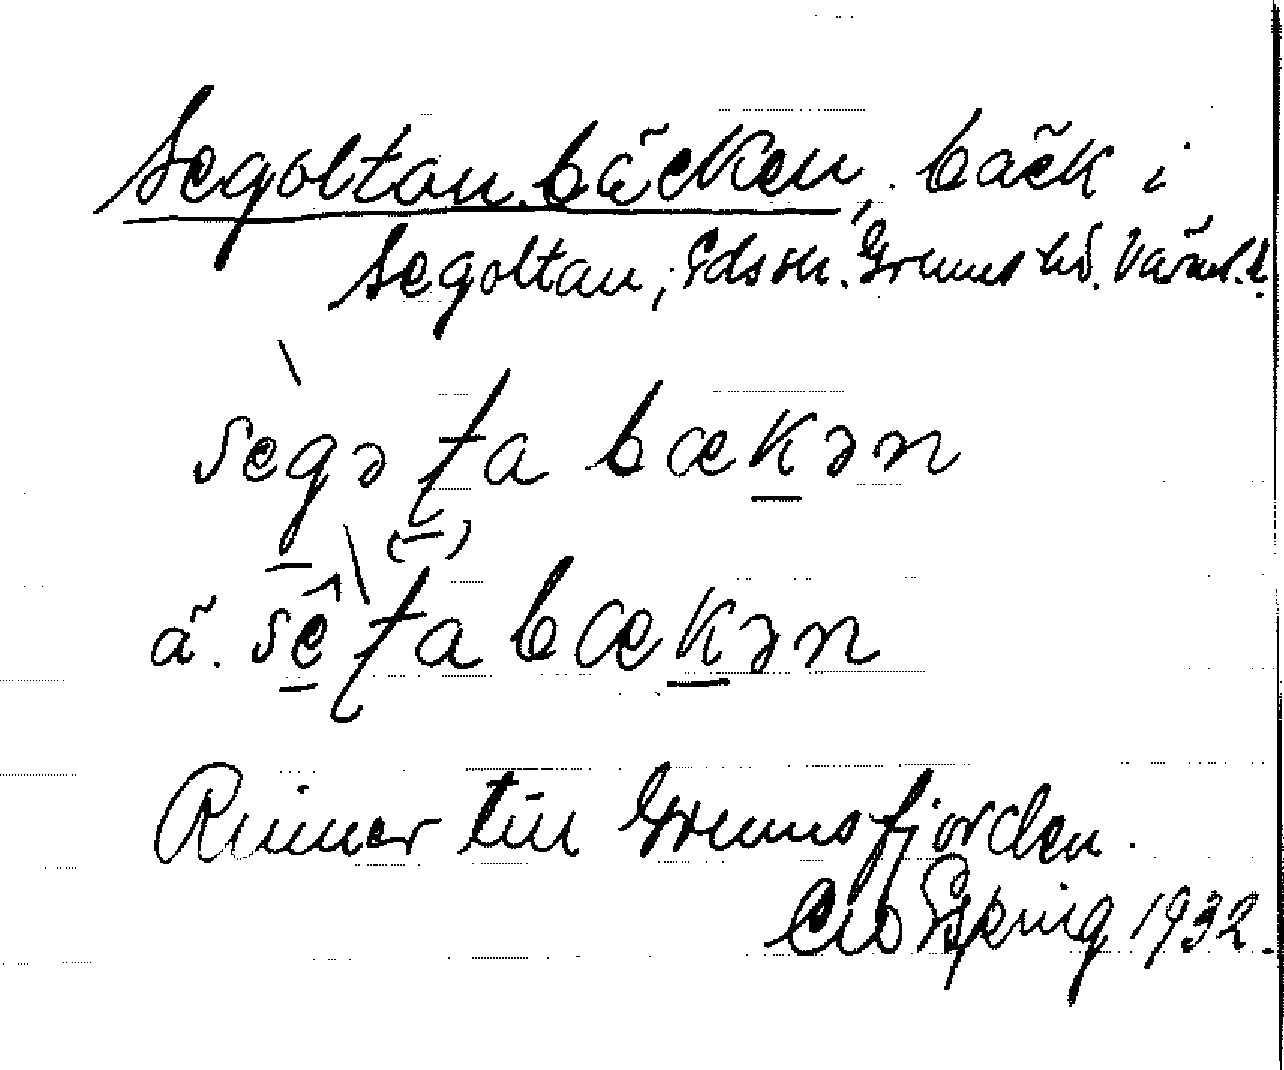 Segoltan.bäcken, bäck i
Segoltan, Eds sn. Grums hd. Värml. l.
segəʈa bækən
ä. sêʈa bækən
Rinner till Grumsfjorden.
Espring 1932.